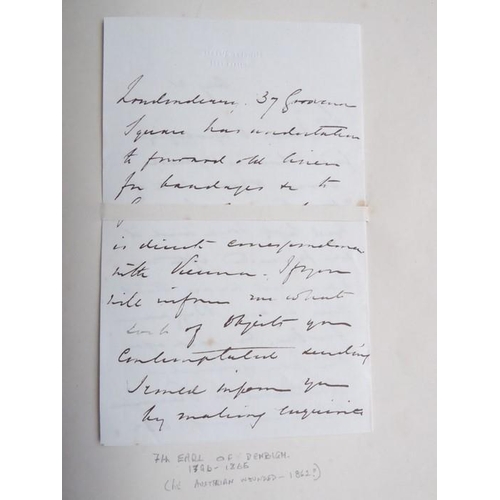 Londonderry. 37 Grosvenor
Square has undertaken
to forward old linen
for bandages &c to
is direct correspondence
with Vienna. If you
will inform me what
sort of objects you
contemplated sending
I could inform you
by making enquiries
7th EARL OF DENBIGH.
1796-1865
(re AUSTRIAN WOUNDED - 1862?)